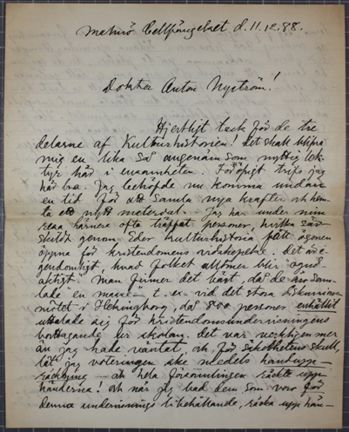 Malmö Cellfängelset d. 11.12.88.
Doktor Anton Nyström!
Hjertligt tack för de tre
delarne af Kulturhistorien! det skall blifva
mig en lika så angenäm som nyttig lek-
tyr här i ensamheten. Föröfrigt trifs jag
här bra. Jag behöfde nu komma undan
en tid för att samla nya krafter och hem-
ta ett nytt material. Jag har under min
resa härnere ofta träffat personer, hvilka sär-
skildt genom Eder Kulturhistoria fått ögonen
öppna för kristendomens vidskepelse. Det är e-
gendomligt, hvad folket allmer blir
Man finner det bäst, då de äro sam-
lade en massa t. ex. vid det stora diskussions-
mötet i Helsingborg, då 800 personer enhälligt
uttalade sig för kristendomsundervisningens
borttagande ur skolan. Det var verkligen mer
än jag hade väntat, och för säkerhetens skull,
lät jag voteringen ske medels handupp-
räckning och hela församlingen räckte upp
händerna! och när jag bad dem som voro för
denna undervisnings bibehållande, räcka upp hän-